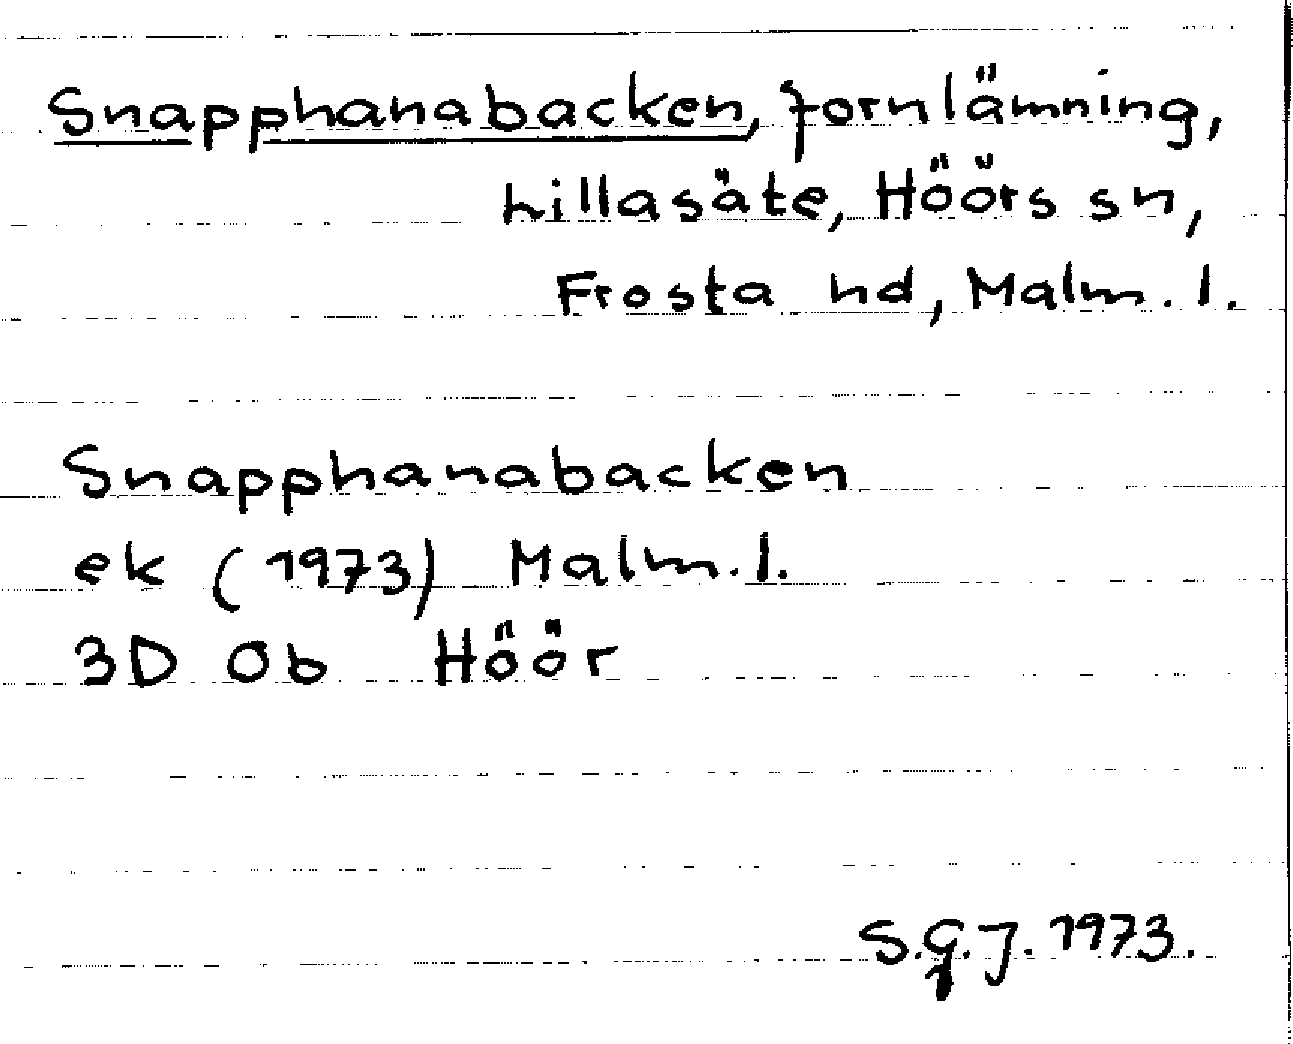 Snapphanabacken, fornlämning,
Lillasäte, Höörs sn,
Frosta hd, Malm. l.
Snapphanabacken
ek (1973) Malm. l.
3D 0b Höör
S.G.J. 1973.